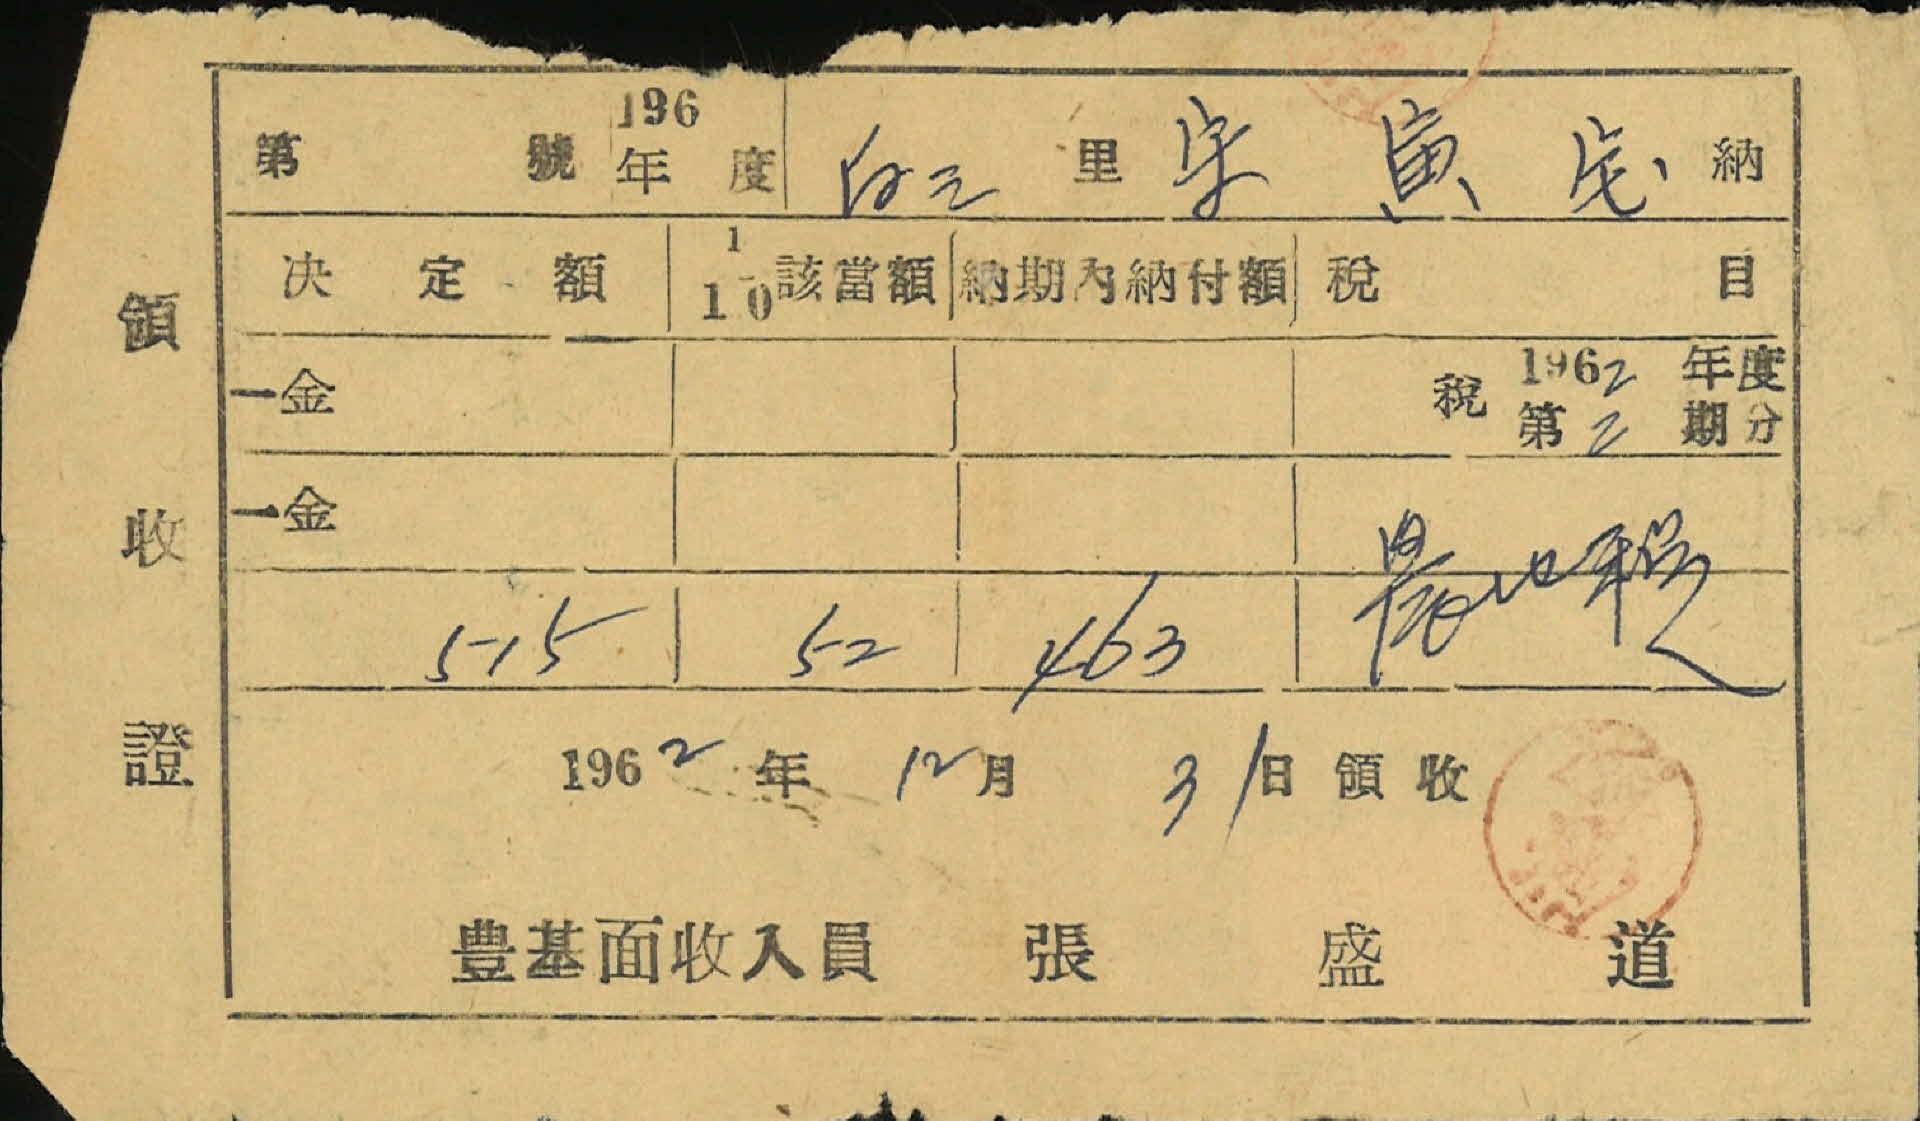 領收證
第 號 196 年 度 白元 里 宋 寅 宅 納
决 定 額 1/10 該當額 納期內納付額 稅 目
一金 稅 1962 年度 第 2 期分
一金
515 52 463 農地稅
1962 年 12 月 31 日 領 收
豊基面收入員 張 盛 道